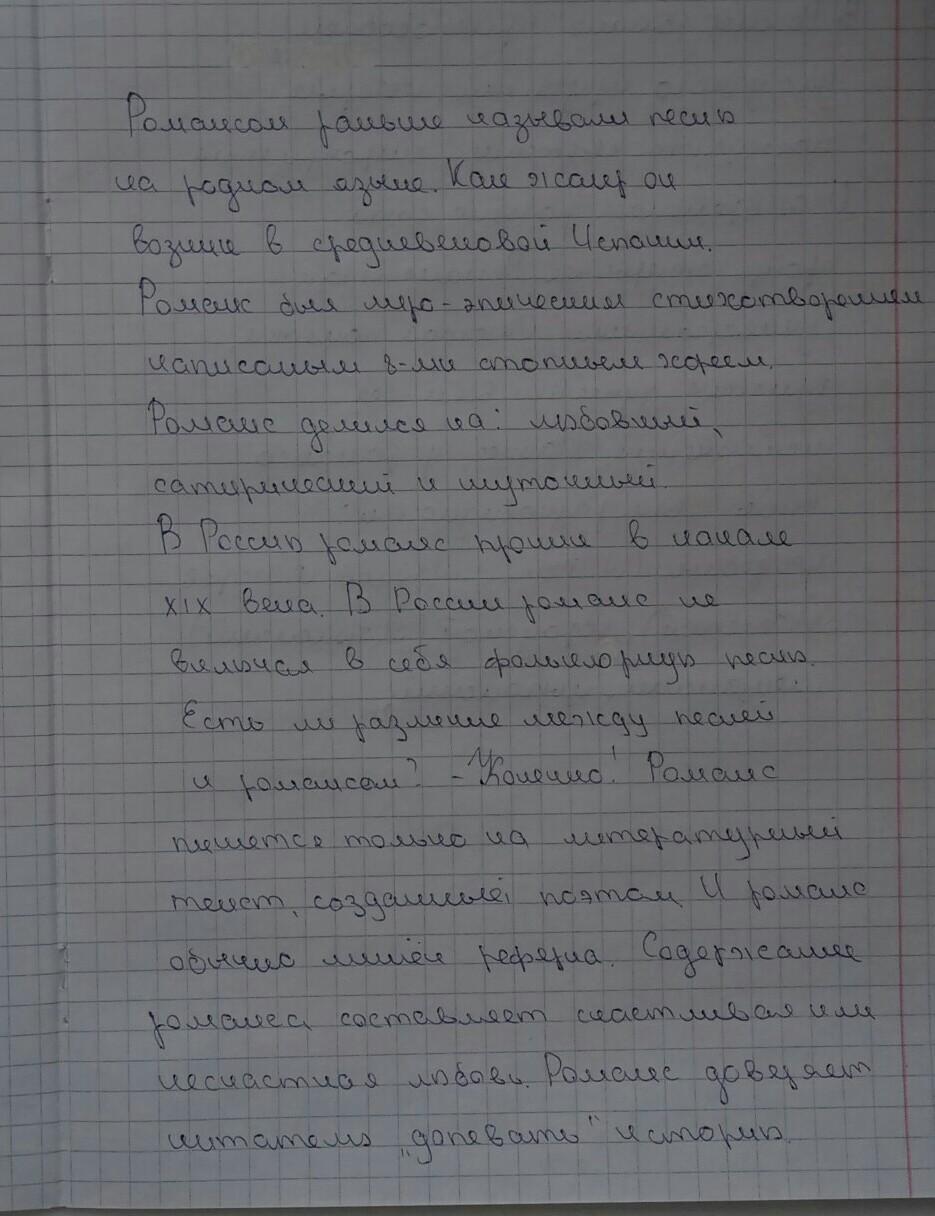 Романсом раньше называли песню
на родном языке. Как жанр он
возник в средневековой Испании.
Романс был лиро-эпическим стихотворением
написаным 8-ми стопным хореем.
Романс делился на: любовный,
сатирический и шуточный.
В Россию романс проник в начале
XIX века. В России романс не
включал в себя фольклорную песню.
Есть ли различие между песней
и романсом? - Конечно! Романс
пишется только на литературный
текст, созданный поэтом. И романс
обычно лишён рефрена. Содержание
романса составляет счастливая или
несчастная любовь. Романс доверяет
читателю „допевать" историю.